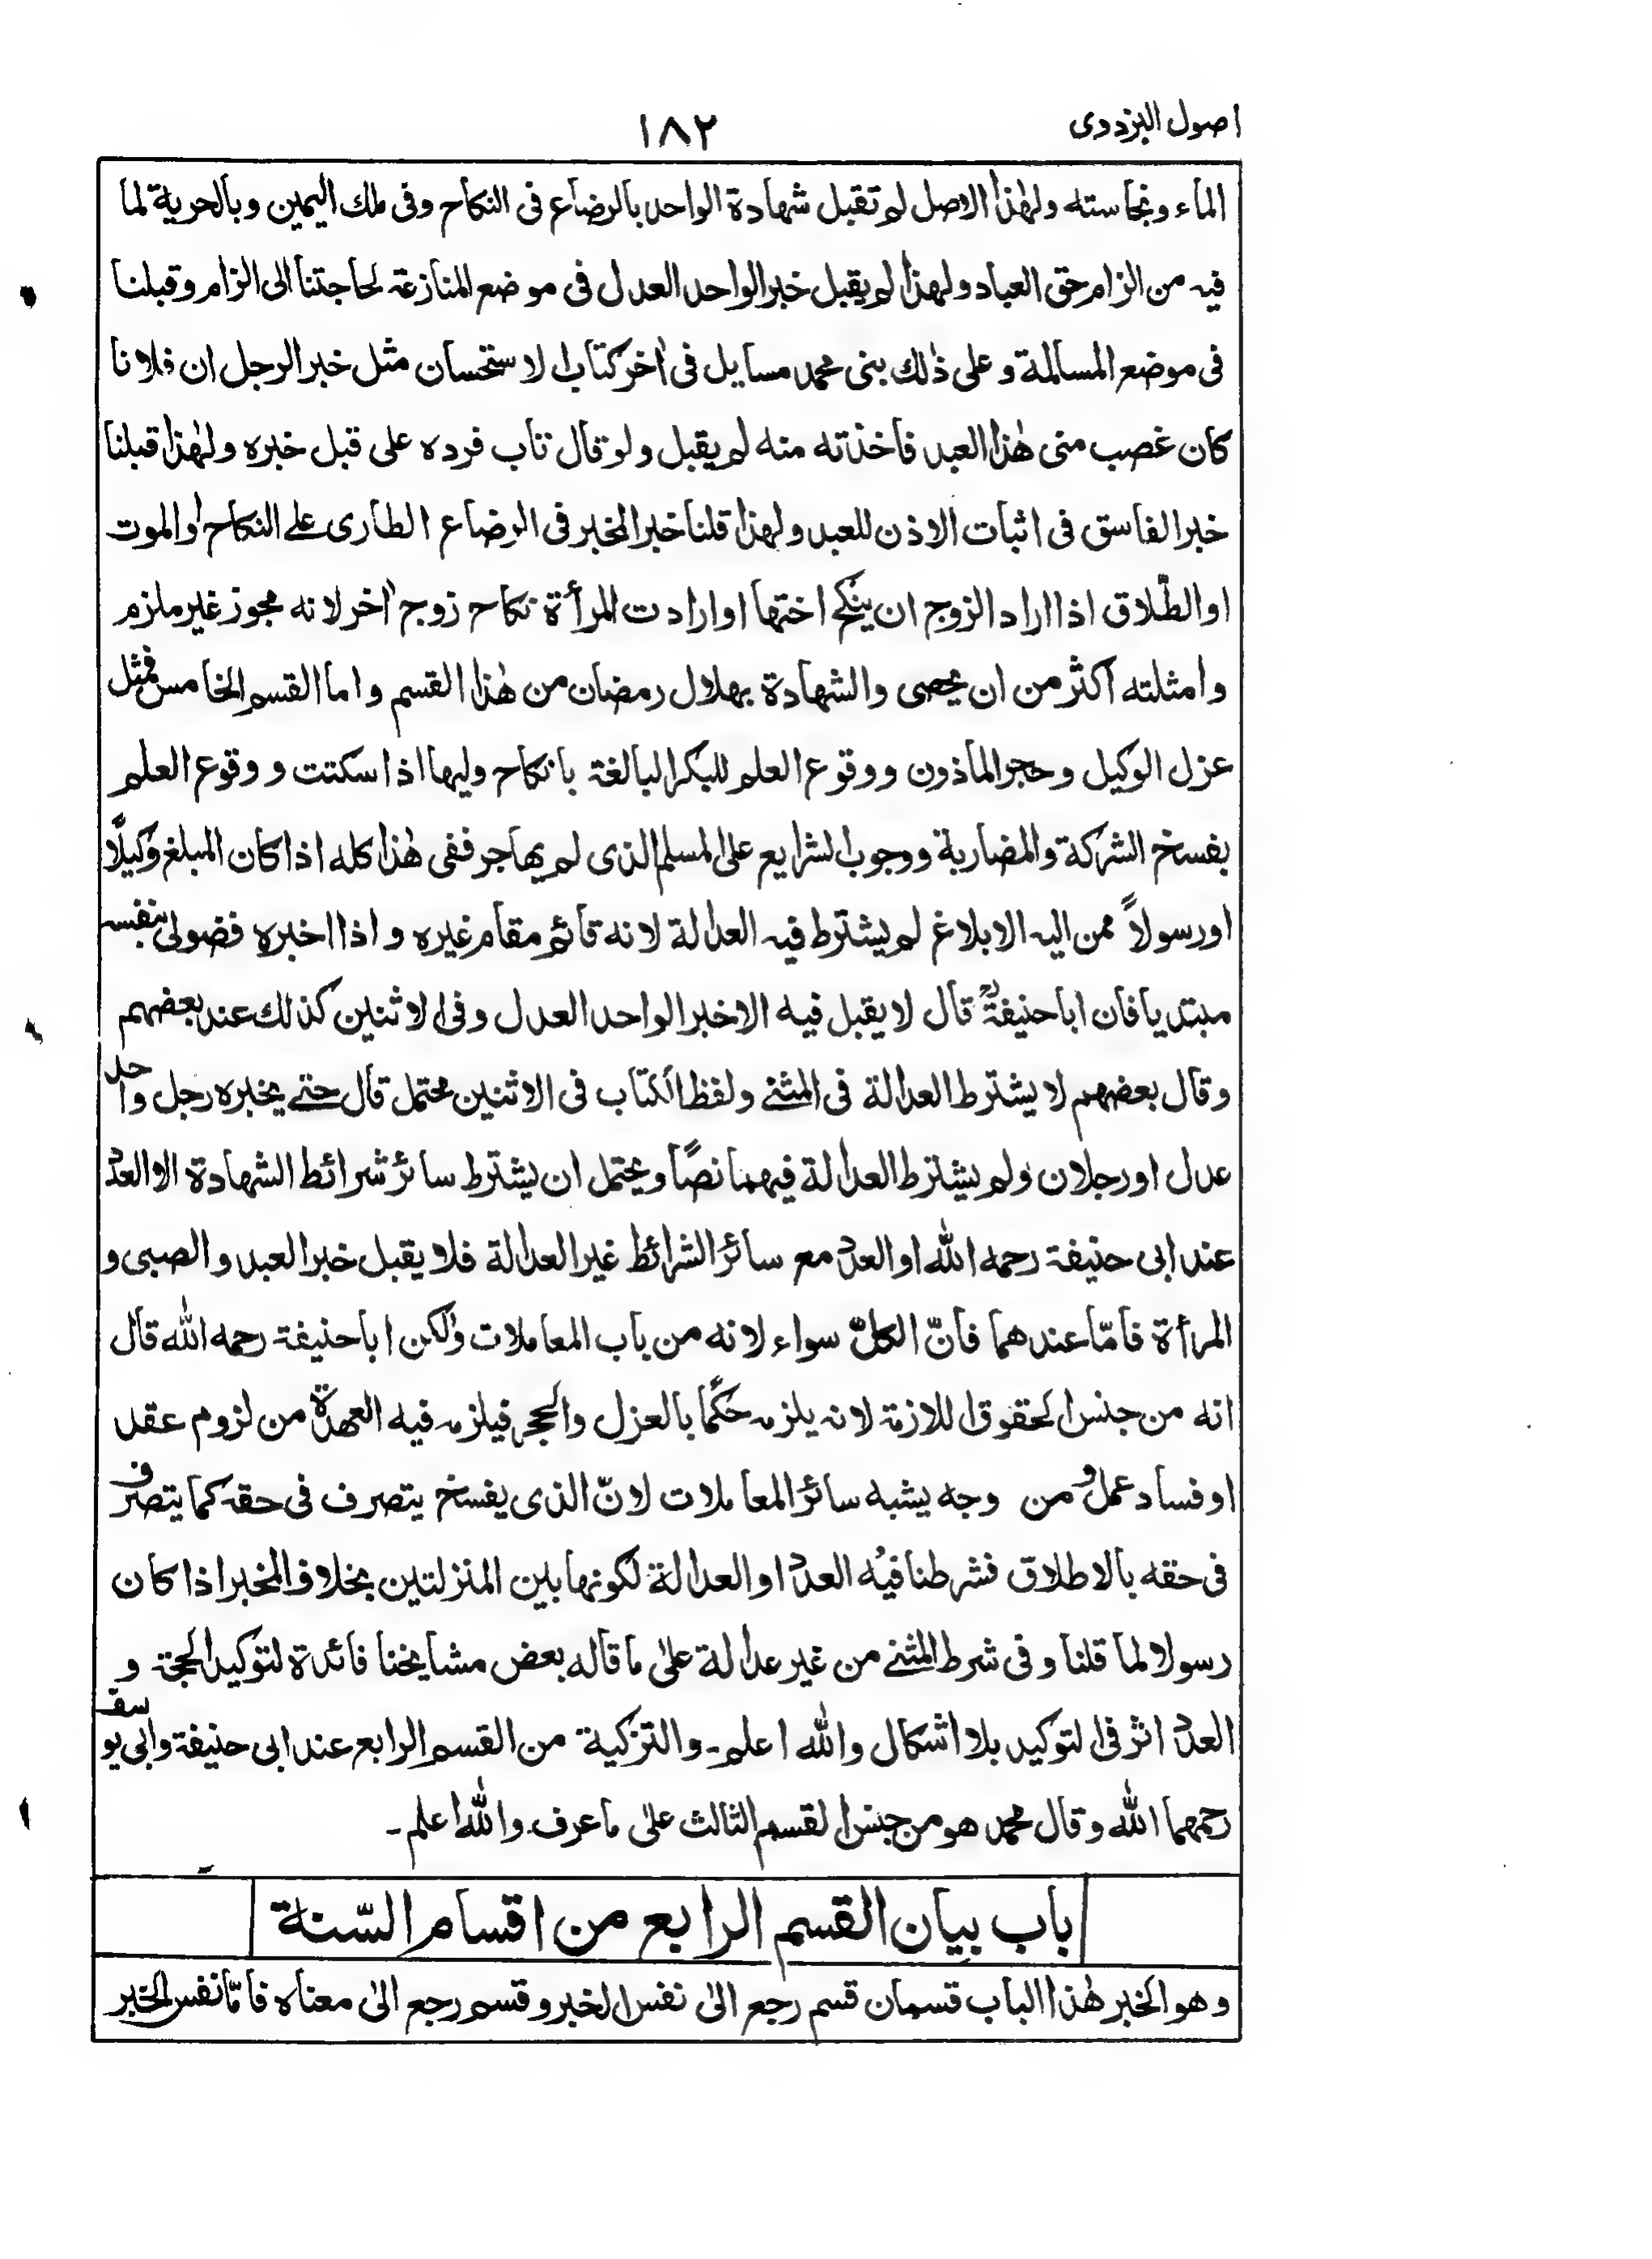 اصول البزدوى
١٨٢
الماء ونجاسته ولهٰذا الاصل لم تقبل شهادة الواحد بالرضاع فى النكاح وفى ملك اليمين وبالحرية لما
فيه من الزام حق العباد ولهذا لم يقبل خبر الواحد العدل فى موضع المنازعة لحاجتنا الى الزام وقبلنا
فى موضع المسالمة وعلى ذٰلك بنى محمد مسايل فى اٰخر كتاب الاستحسان مثل خبر الرجل ان فلانا
كان غصب منى هٰذا العبد فاخذته منه لم يقبل ولو قال تاب فرده على قبل خبره ولهٰذا قبلنا
خبر الفاسق فى اثبات الاذن للعبد ولهذا قلنا خبر المخبر فى الرضاع الطارى على النكاح او الموت
او الطّلاق اذا اراد الزوج ان ينكح اختها او ارادت المرأة نكاح زوج اٰخر لانه مجوز غير ملزم
وامثلته اكثر من ان يحصى والشهادة بهلال رمضان من هٰذا القسم واما القسم الخامس فمثل
عزل الوكيل وحجر الماذون ووقوع العلم للبكر البالغة بانكاح وليها اذا سكتت ووقوع العلم
بفسخ الشركة والمضاربة ووجوب الشرايع على المسلم الذى لم يهاجر ففى هٰذا كله اذا كان المبلغ وكيلًا
او رسولاً ممن اليه الابلاغ لم يشترط فيه العدالة لانه قائم مقام غيره واذا اخبره فضولى بنفسه
مبتديا فان ابا حنيفةؒ قال لا يقبل فيه الا خبر الواحد العدل وفى الاثنين كذلك عند بعضهم
وقال بعضهم لا يشترط العدالة فى المثنى ولفظ الكتاب فى الاثنين محتمل قال حتى يخبره رجل واحد
عدل او رجلان ولم يشترط العدالة فيهما نصًا ويحتمل ان يشترط سائر شرائط الشهادة الا العدد
عند ابى حنيفة رحمه الله او العدد مع سائر الشرائط غير العدالة فلا يقبل خبر العبد والصبى و
المرأة فامّا عندهما فانّ الكلّ سواء لانه من باب المعاملات ولٰكن ابا حنيفة رحمه الله قال
انه من جنس الحقوق اللازمة لانه يلزمه حكمًا بالعزل والحجر فيلزمه فيه العهدة من لزوم عقد
او فساد عمل ومن وجه يشبه سائر المعاملات لانّ الذى يفسخ يتصرف فى حقه كما يتصرف
فى حقه بالاطلاق فشرطنا فيه العدد او العدالة لكونها بين المنزلتين بخلاف المخبر اذا كان
رسولا لما قلنا وفى شرط المثنى من غير عدالة علىٰ ما قاله بعض مشايخنا فائدة لتوكيد الحجة و
العدد اثر فى التوكيد بلا اشكال والله اعلم۔ والتزكية من القسم الرابع عند ابى حنيفة وابى يوسف
رحمهما الله وقال محمد هو من جنس القسم الثالث علىٰ ما عرف والله اعلم۔
باب بيان القسم الرابع من اقسام السّنة
وهو الخبر هٰذا الباب قسمان قسم رجع الىٰ نفس الخبر وقسم رجع الىٰ معناه فامّا نفس الخبر